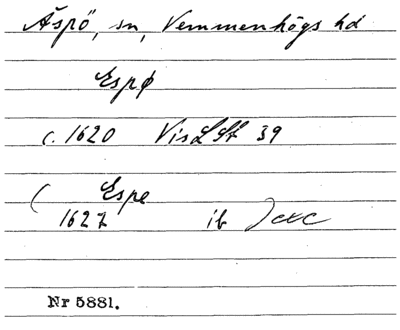 Äspö, sn, Vemmenhögs hd
Espø
c. 1620 VisLSt 39
( Espe
1627 ib )
Nr 5881.